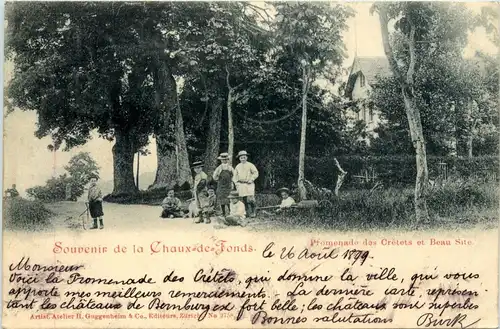 Souvenir de la Chaux-de-Fonds.
Promenade des Crêtets et Beau Site.
le 26 Août 1899.
Monsieur
Voici la Promenade des Crêtets, qui domine la ville, qui vous
apporte mes meilleurs remerciements. La dernière carte, représen-
tant les châteaux de est fort belle; les châteaux sont superbes
Bonnes salutations
Artist. Atelier H. Guggenheim & Co., Editeurs, Zürich. No. 3750.